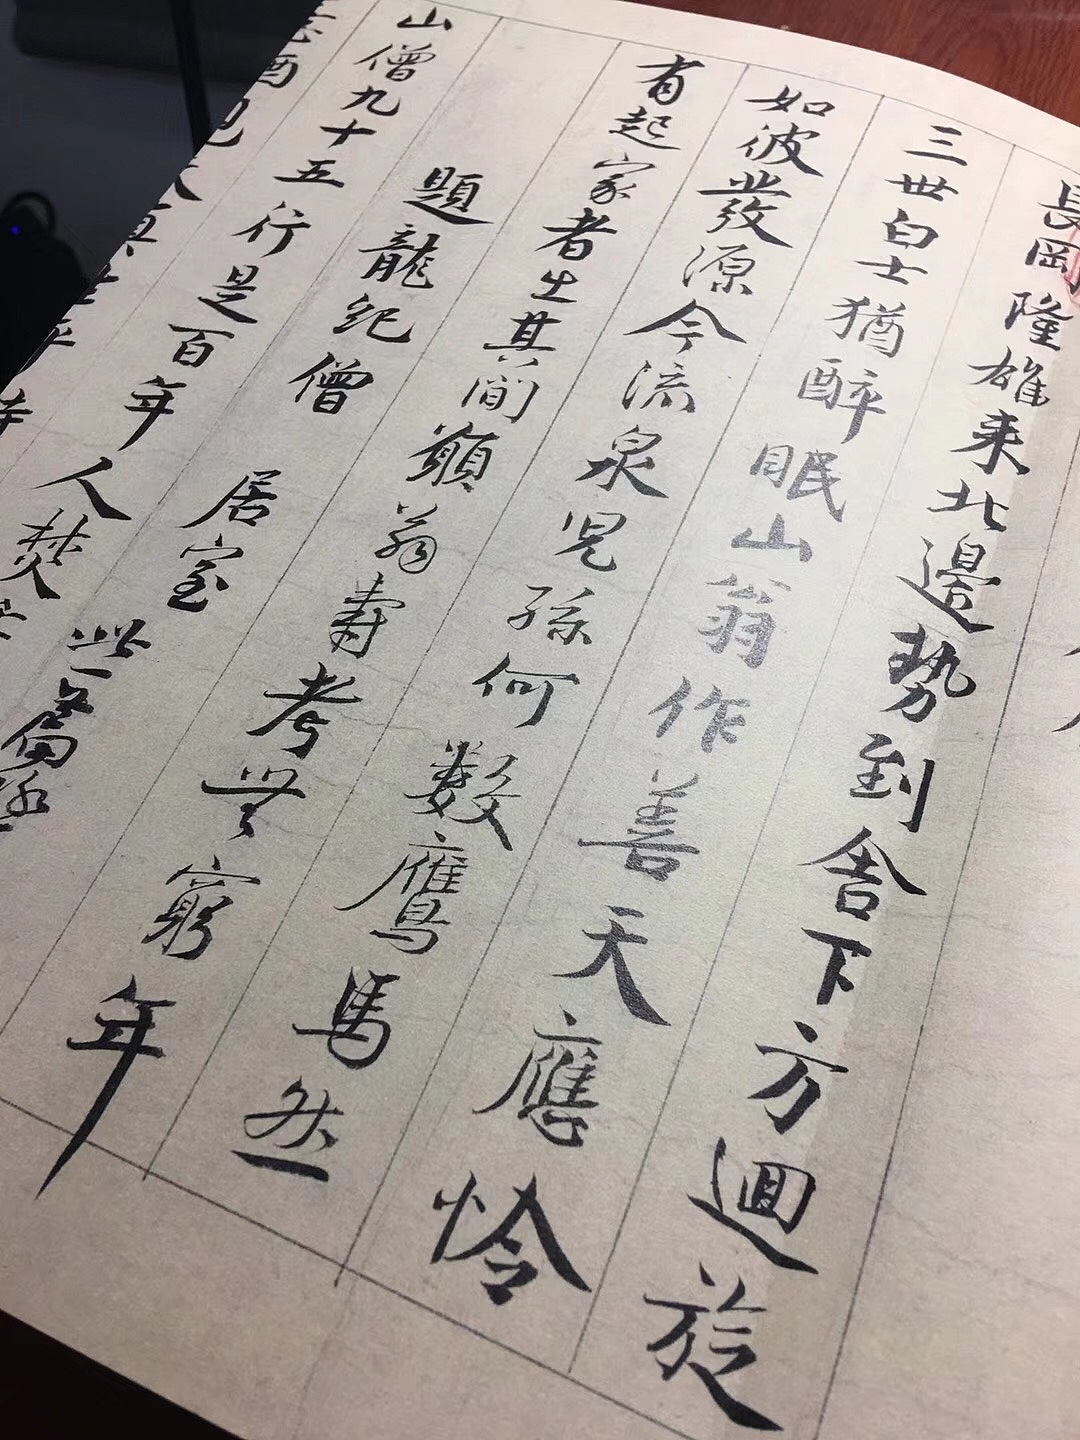 長岡隆雄来北邊勢到舍下方迴旋
三世白士猶醉眠山翁作善天應怜
如彼發源今流泉児孫何數鷹馬然
有起家者生其間願翁壽考無窮年
題龍紀僧居室 此篇
山僧九十五行是百年人焚
酒見天真